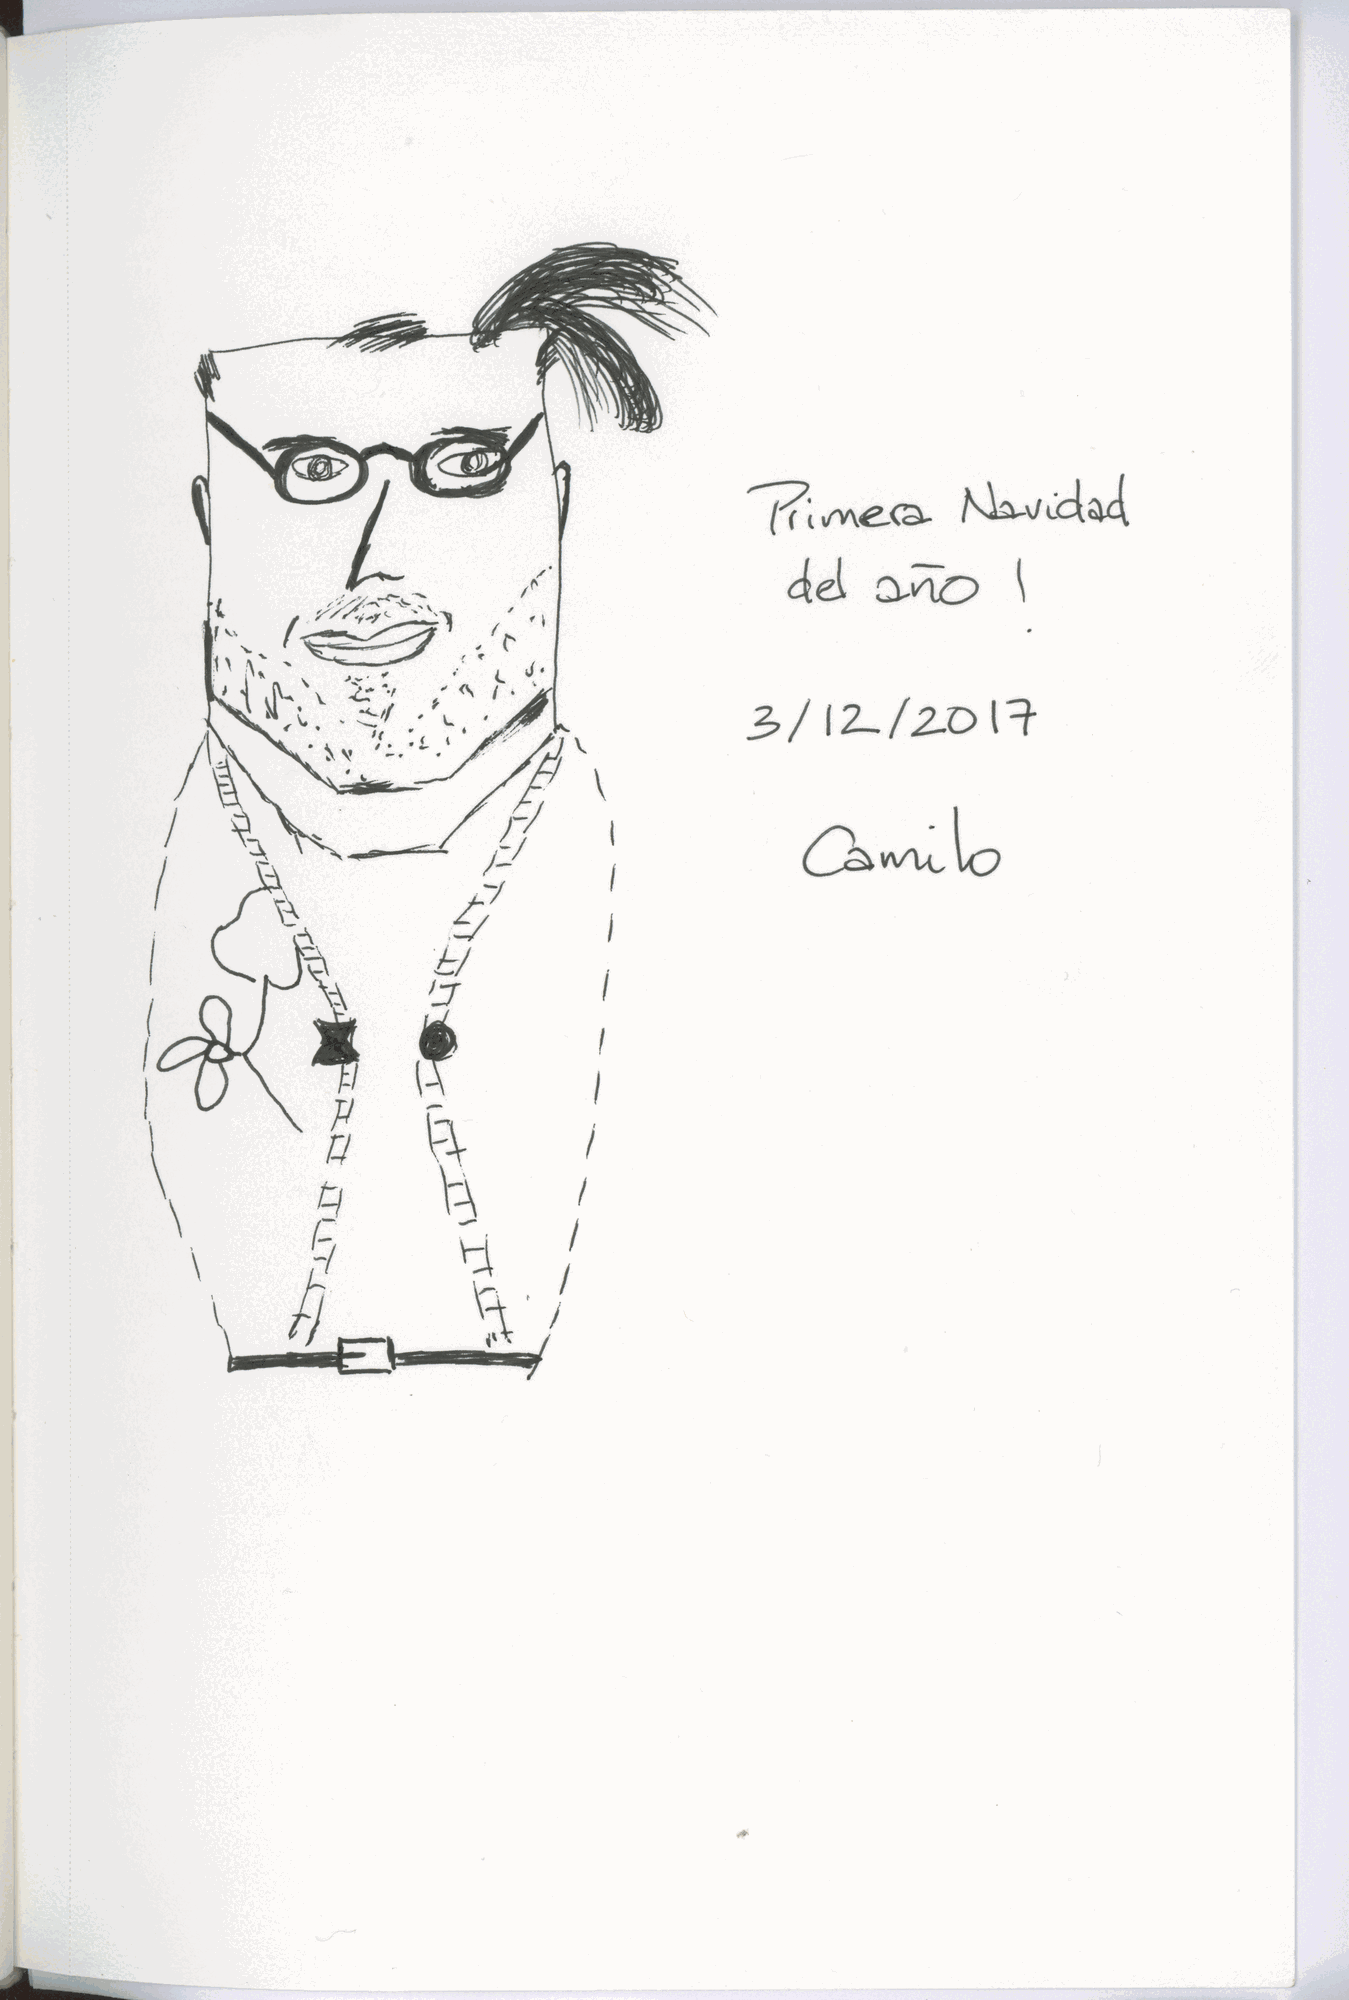 Primera Navidad
del año !
3/12/2017
Camilo